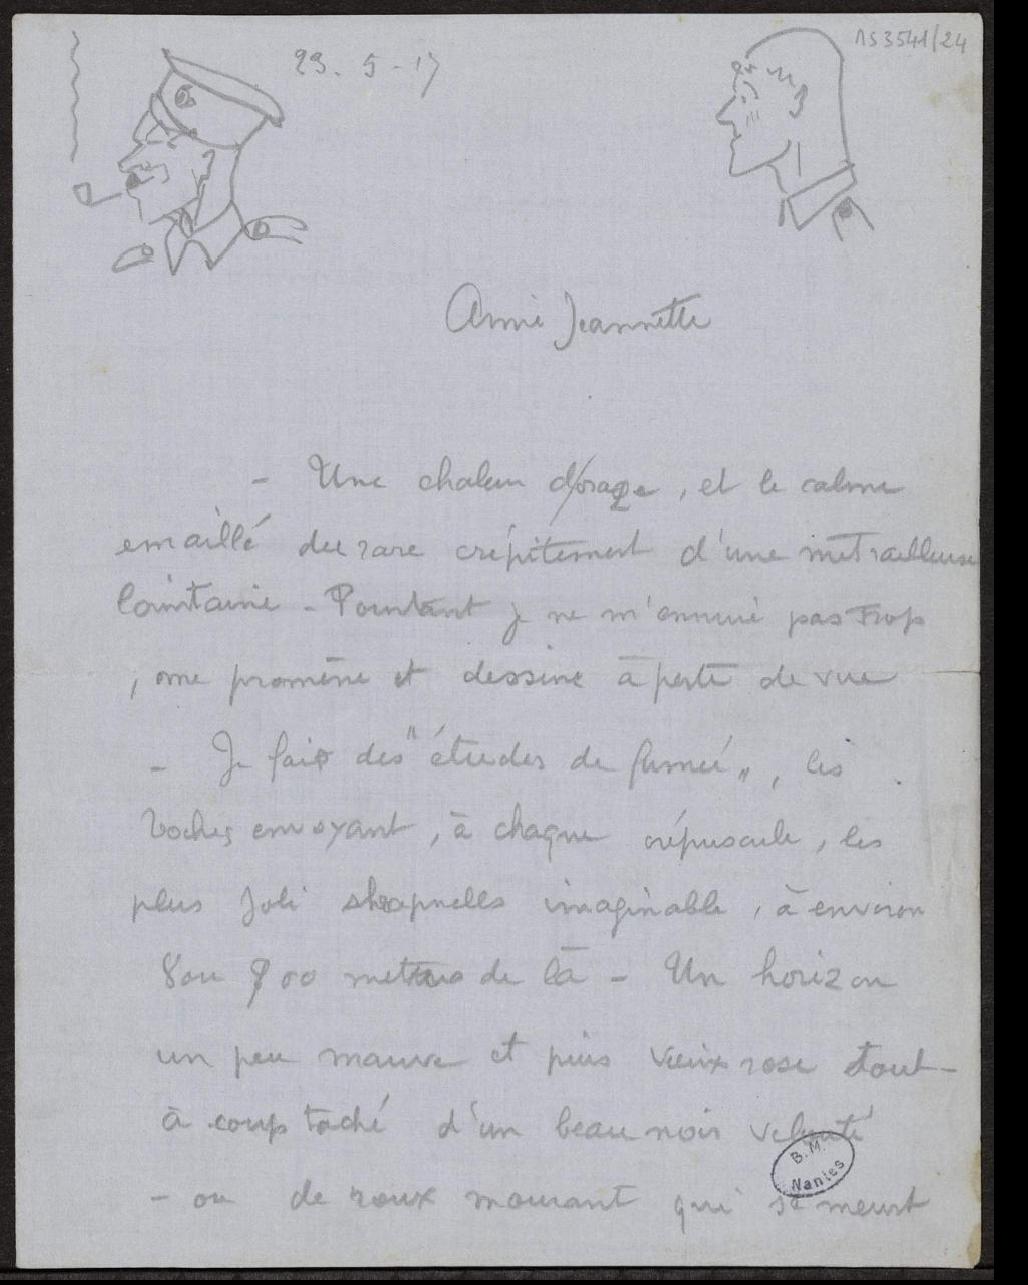 23. 5 - 17
MS 3541/24
Amie Jeannette
- Une chaleur d'orage, et le calme
emaillé du rare crépitement d'une mitrailleuse
lointaine - Pourtant je ne m'ennuie pas trop
, me promène et dessine à perte de vue
- Je fais des "études de fumée", les
boches envoyant, à chaque crépuscule, les
plus joli shrapnells imaginable, à environ
8 ou 900 metres de là - Un horizon
un peu mauve et puis vieux rose tout-
à coup taché d'un beau noir velouté
- ou de roux mourant qui se meurt
B. M.
Nantes